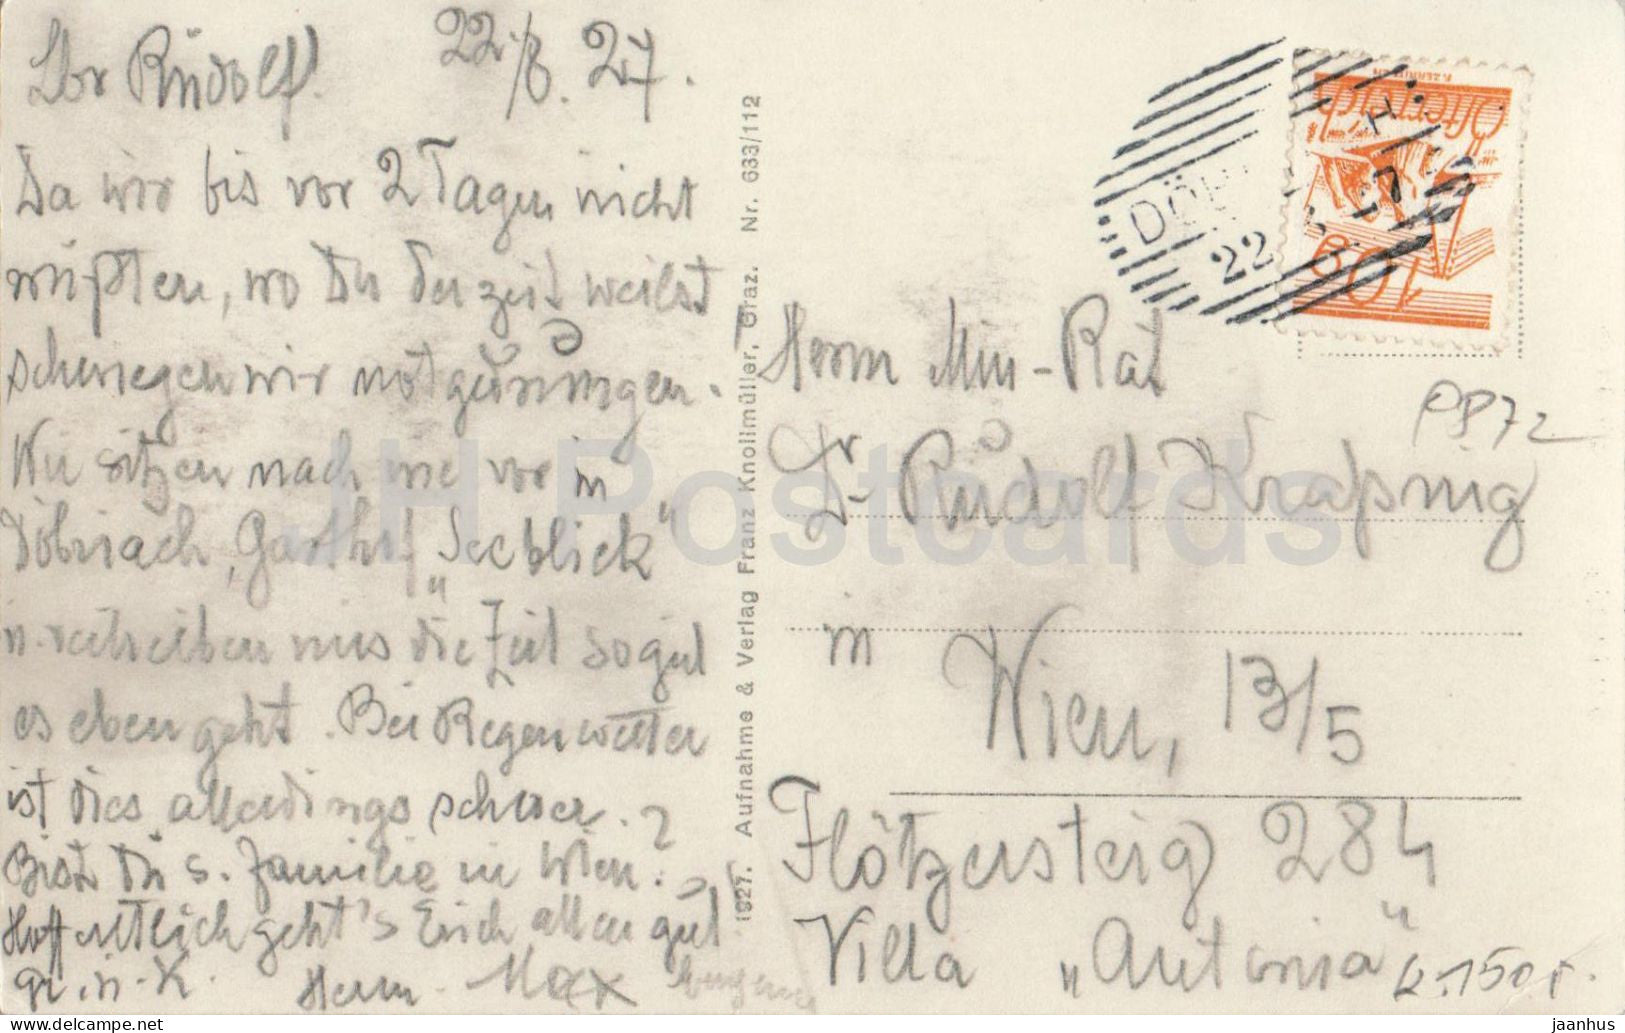 Lbr Rudolf! 22./8. 27.
Da wir bis vor 2 Tagen nicht
wußten, wo Du derzeit weilst
schwiegen wir notgedrungen.
Wir sitzen nach wie vor in
Döbriach, Gasthf „Seeblick"
u. vertreiben uns die Zeit so gut
es eben geht. Bei Regenwetter
ist dies allerdings schwer.
Bist Du s. Familie in Wien?
Hoffentlich geht's Euch allen gut
Gr. u. K. Herm. Max
1927. Aufnahme & Verlag Franz Knollmüller, Graz. Nr. 633/112
Österreich
10 g
22
27
Herrn Min-Rat
Dr Rudolf Krapsnig
in
Wien, 13/5
Flötzersteig 284
Villa „Antonia"
P872
JH Postcards
jaanhus @ delcampe.net